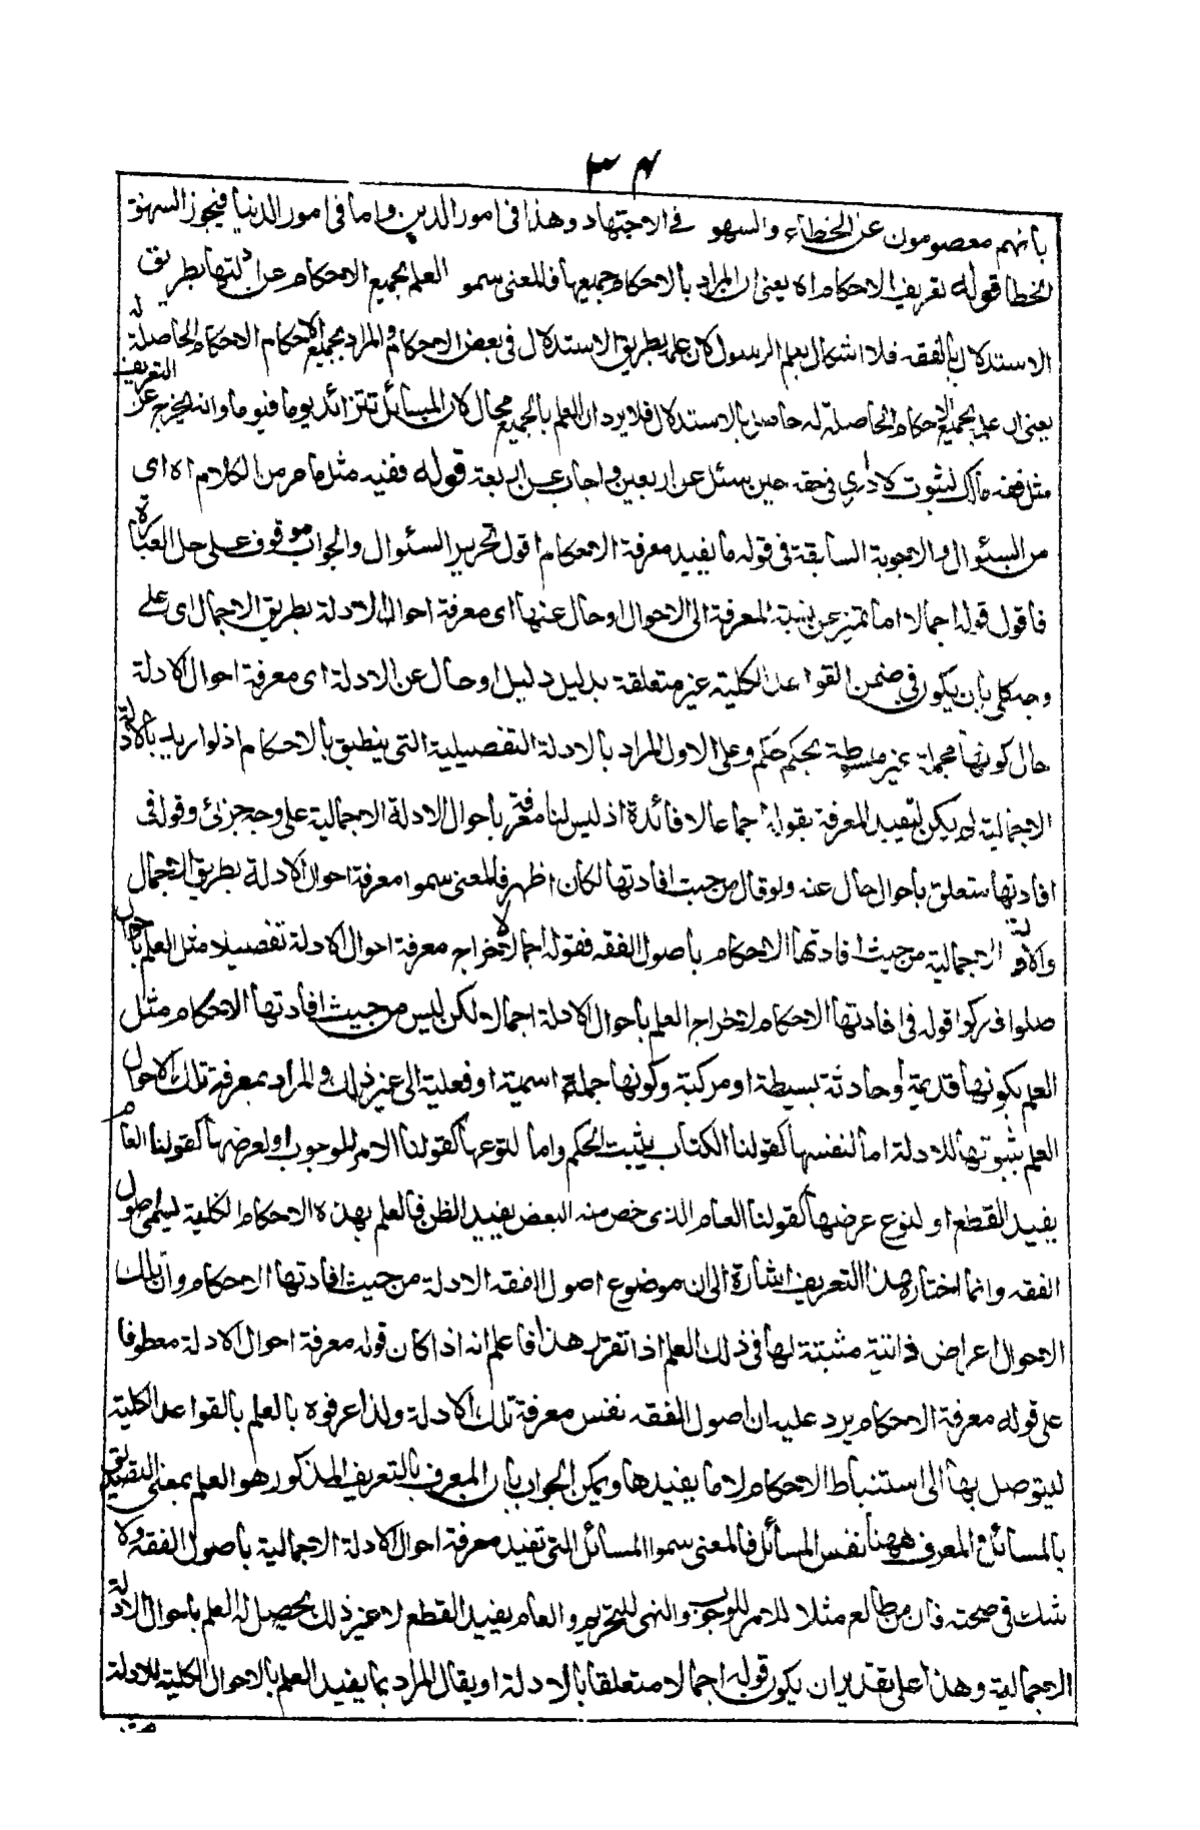 ٣٤
بانهم معصومون عن الخطاء والسهو في الاجتهاد وهذا في امور الدين واما في امور الدنيا فيجوز السهو
الخطا قوله تعريف الاحكام اه يعني ان المراد بالاحكام جميعها فالمعنى سموا العلم بجميع الاحكام عن ادلتها بطريق
الاستدلال بالفقه فلا اشكال بعلم الرسول لان علمه بطريق الاستدلال في بعض الاحكام والمراد بجميع الاحكام الاحكام الحاصلة له
يعني ان علمه بجميع الاحكام الحاصلة له حاصل بالاستدلال فلا يرد ان العلم بالجميع محال لان المسائل تتزائد يوما فيوما وانه يخرج عن التعريف
مثل فقه مالك لثبوت لا ادري في حقه حين سئل عن اربعين واجاب عن اربعة قوله ففيه مثل ما مر من الكلام اه اى
من السئوال والاجوبة السابقة في قوله ما يفيد معرفة الاحكام اقول تحرير السئوال والجواب موقوف على حل العبارة
فاقول قوله اجمالا اما تميز عن نسبة المعرفة الى الاحوال او حال عنها اى معرفة احوال الادلة بطريق الاجمال اى على
وجه كلى بان يكون في ضمن القواعد الكلية غير متعلقة بدليل دليل او حال عن الادلة اى معرفة احوال الادلة
حال كونها مجملة غير منوطة بحكم حكم وعلى الاول المراد بالادلة التفصيلية التى ينطبق بالاحكام اذ لو اريد بالادلة
الاجمالية لم يكن لتقييد المعرفة بقوله اجمالا فائدة اذ ليس لنا معرفة باحوال الادلة الاجمالية على وجه جزئى وقوله في
افادتها متعلق باحوال حال عنه ولو قال من حيث افادتها لكان اظهر فالمعنى سموا معرفة احوال الادلة بطريق الاجمال
والادلة الاجمالية من حيث افادتها الاحكام باصول الفقه فقوله اجمالا لاخراج معرفة احوال الادلة تفصيلا مثل العلم باحوال
صلوا وزكوا قوله في افادتها الاحكام لاخراج العلم باحوال الادلة اجمالا لكن ليس من حيث افادتها الاحكام مثل
العلم بكونها قديمة أو حادثة بسيطة او مركبة وكونها جملة اسمية او فعلية الى غير ذلك والمراد بمعرفة تلك الاحوال
العلم بثبوتها للادلة اما لنفسها كقولنا الكتاب يثبت الحكم واما لنوعها كقولنا الامر للوجوب او لعرضها كقولنا العام
يفيد القطع او لنوع عرضها كقولنا العام الذى خص منه البعض يفيد الظن فالعلم بهذه الاحكام الكلية ليسمى اصول
الفقه وانما اختاره هذا التعريف اشارة الى ان موضوع اصول الفقه الادلة من حيث افادتها الاحكام وان تلك
الاحوال اعراض ذاتية مثبتة لها في ذلك العلم اذا تقرر هذا فاعلم انه اذا كان قوله معرفة احوال الادلة معطوفا
على قوله معرفة الاحكام يرد عليه ان اصول الفقه نفس معرفة تلك الادلة ولذا عرفوه بالعلم بالقواعد الكلية
ليتوصل بها الى استنباط الاحكام لا ما يفيدها ويمكن الجواب بان المعرف بالتعريف المذكور هو العلم بمعنى التصديق
بالمسائل والمعرف ههنا نفس المسائل فالمعنى سموا المسائل التى تفيد معرفة احوال الادلة الاجمالية باصول الفقه ولا
شك في صحته فان من طالع مثلا الامر للوجوب والنهى للتحريم والعام يفيد القطع لا غير ذلك يحصل له العلم باحوال الادلة
الاجمالية وهذا على تقدير ان يكون قوله اجمالا متعلقا بالادلة او يقال المراد بما يفيد العلم بالاحوال الكلية للادلة